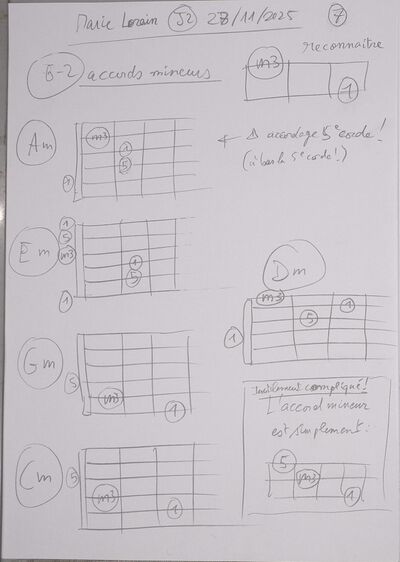 Marie Lorain S2 28/11/2025 7
6-2 accords mineurs
reconnaître
m3
1
Am
m3
1
5
1
← Δ accordage 5e corde !
(à bas la 5e corde !)
Em
1
5
m3
1
5
1
Dm
m3
1
5
1
Gm
5
m3
1
Cm
5
m3
1
Inutilement compliqué !
L'accord mineur
est simplement :
5
m3
1